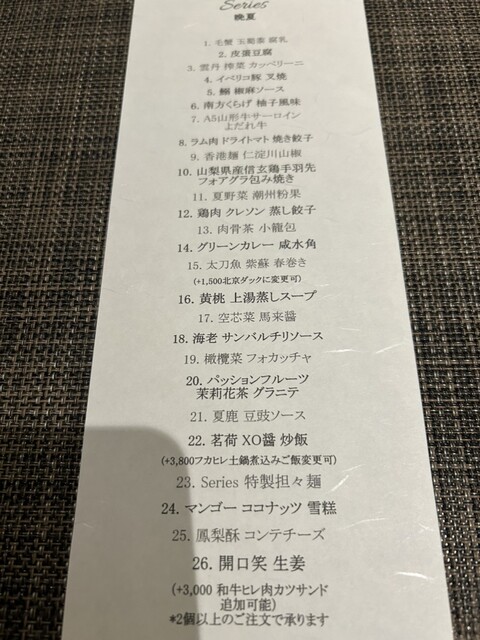 Series
晩夏
1. 毛蟹 玉蜀黍 腐乳
2. 皮蛋豆腐
3. 雲丹 搾菜 カッペリーニ
4. イベリコ豚 叉焼
5. 鰯 椒麻ソース
6. 南方くらげ 柚子風味
7. A5山形牛サーロイン
よだれ牛
8. ラム肉 ドライトマト 焼き餃子
9. 香港麺 仁淀川山椒
10. 山梨県産信玄鶏手羽先
フォアグラ包み焼き
11. 夏野菜 潮州粉果
12. 鶏肉 クレソン 蒸し餃子
13. 肉骨茶 小籠包
14. グリーンカレー 咸水角
15. 太刀魚 紫蘇 春巻き
(+1,500北京ダックに変更可)
16. 黄桃 上湯蒸しスープ
17. 空芯菜 馬来醤
18. 海老 サンバルチリソース
19. 橄欖菜 フォカッチャ
20. パッションフルーツ
茉莉花茶 グラニテ
21. 夏鹿 豆豉ソース
22. 茗荷 XO醤 炒飯
(+3,800フカヒレ土鍋煮込みご飯変更可)
23. Series 特製担々麺
24. マンゴー ココナッツ 雪糕
25. 鳳梨酥 コンテチーズ
26. 開口笑 生姜
(+3,000 和牛ヒレ肉カツサンド
追加可能)
*2個以上のご注文で承ります